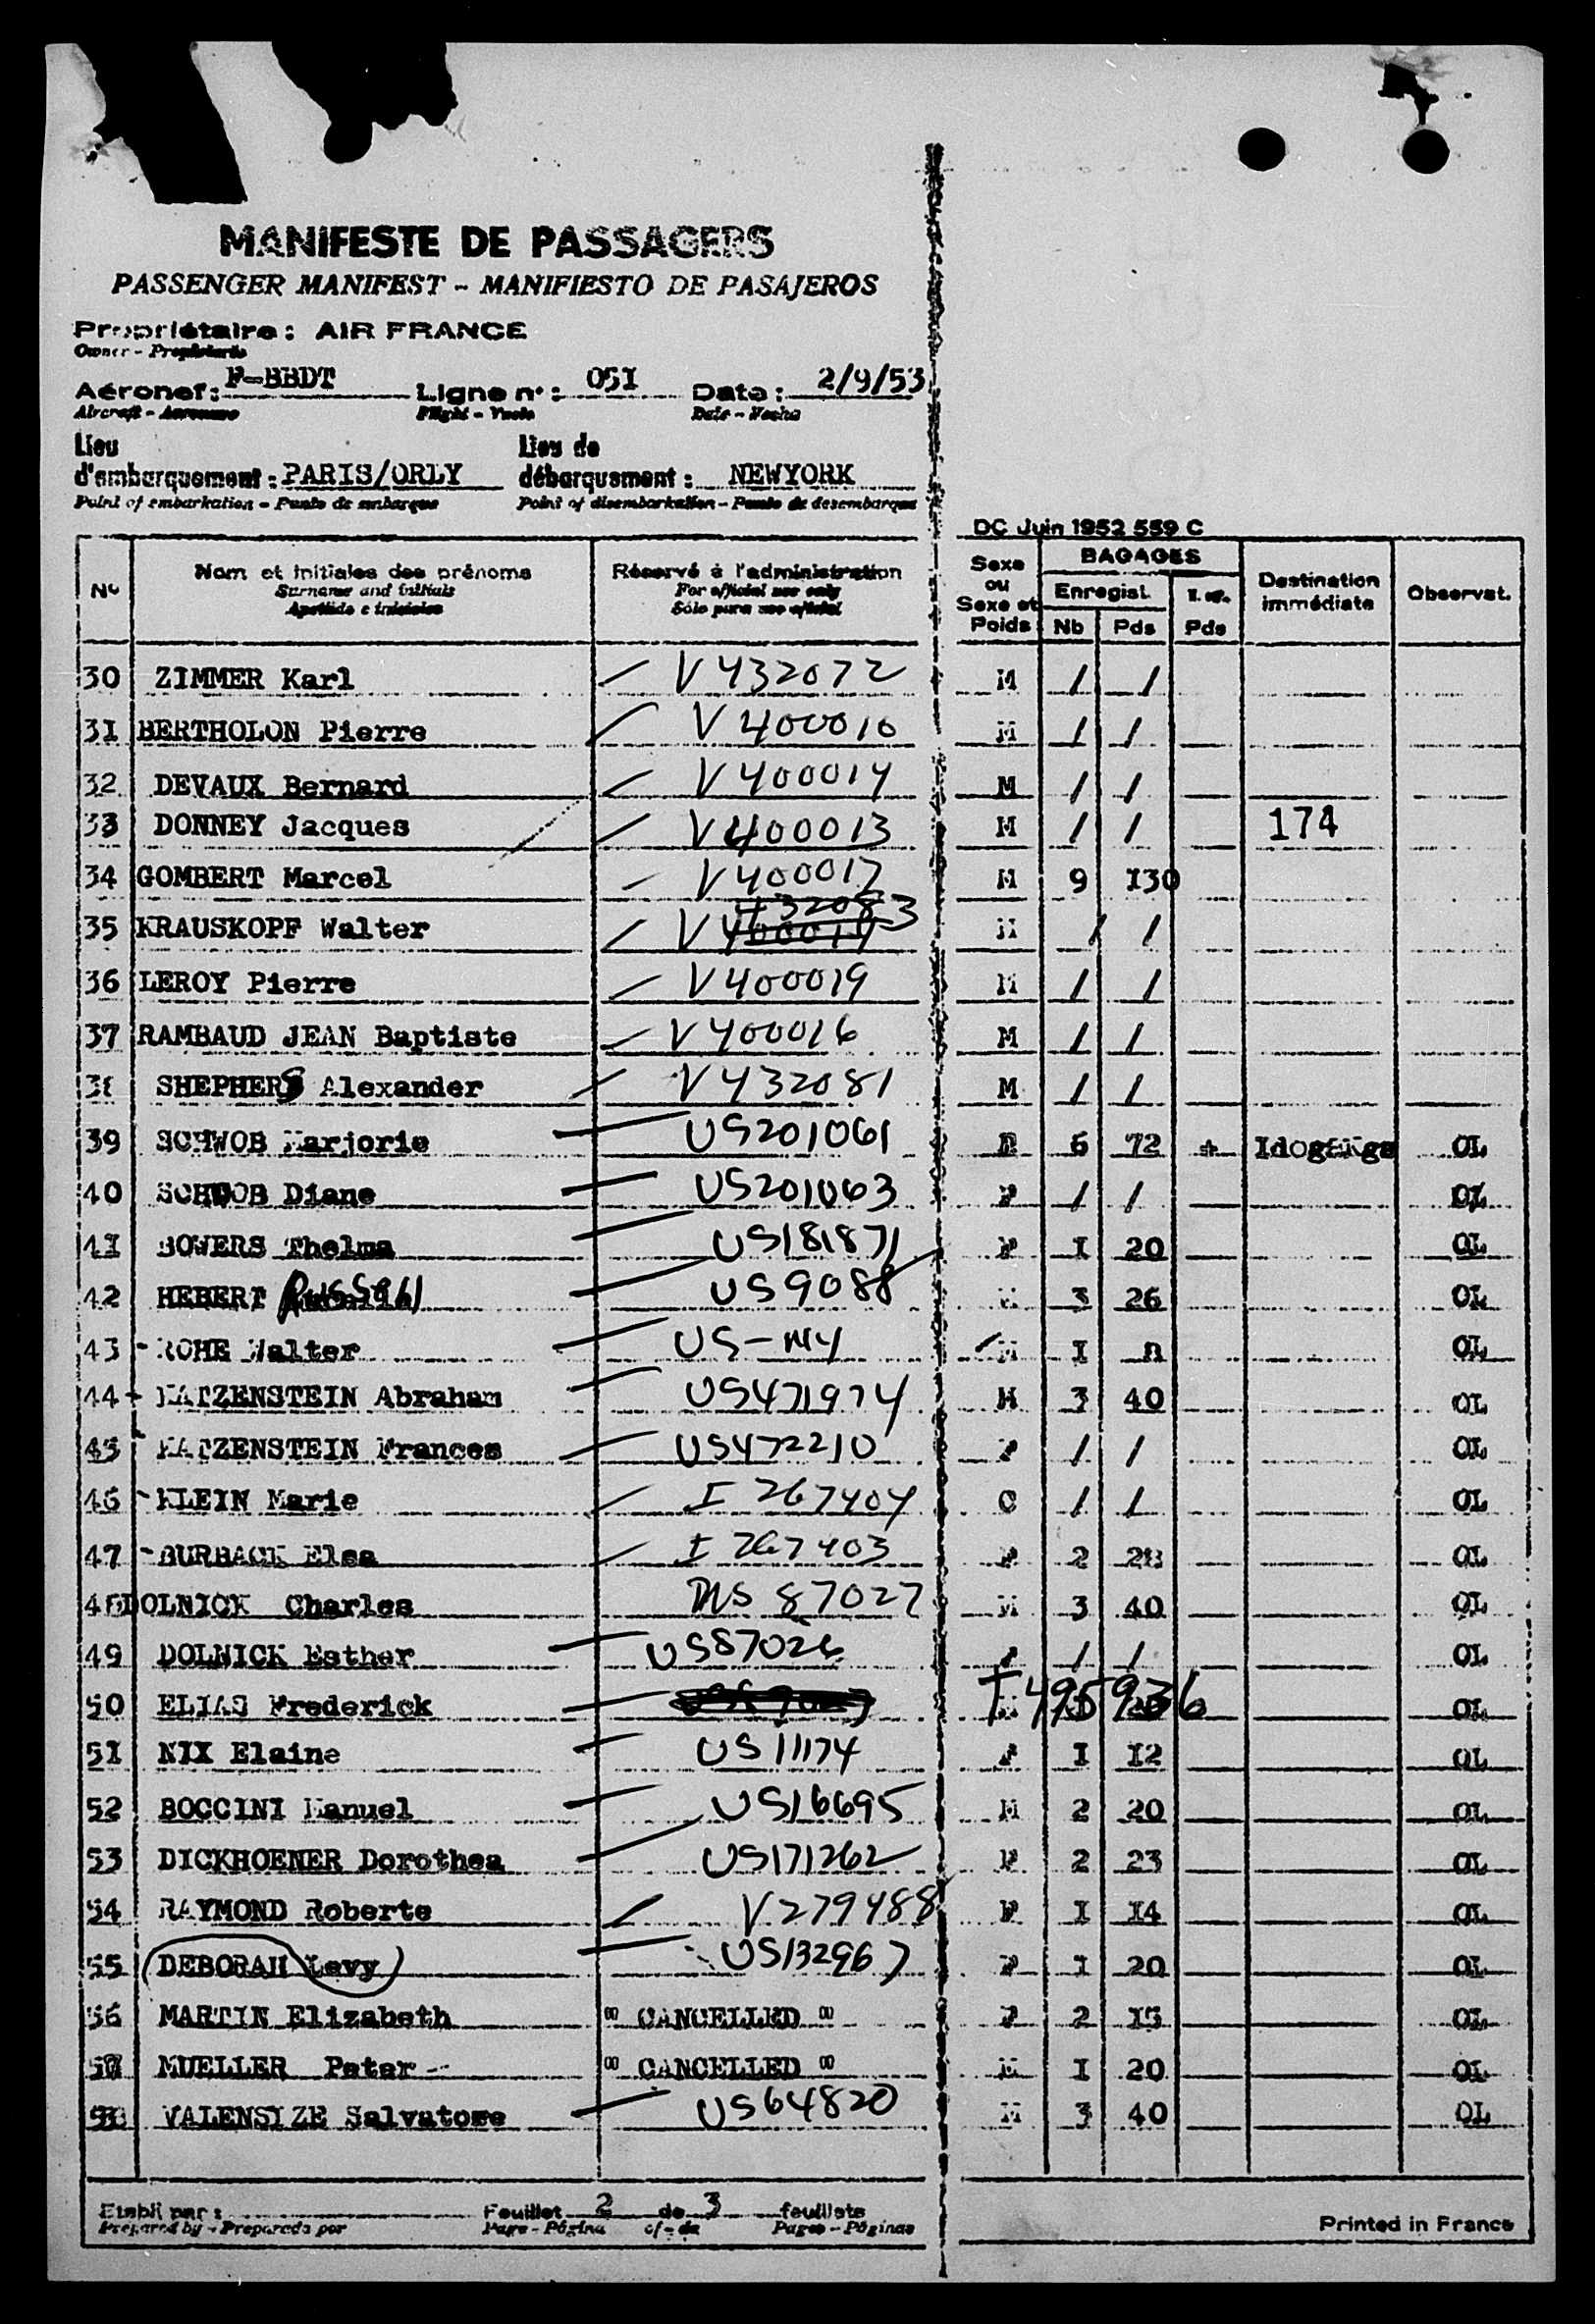 MANIFESTE DE PASSAGERS
PASSENGER MANIFEST - MANIFIESTO DE PASAJEROS
Propriétaire : AIR FRANCE
Owner - Propietario
Aéronef : F-BBDT Ligne n° : 051 Date : 2/9/53
Aircraft - Aeronave Flight - Vuelo Date - Fecha
Lieu d'embarquement : PARIS/ORLY Lieu de débarquement : NEWYORK
Point of embarkation - Punto de embarque Point of disembarkation - Punto de desembarque
DC Juin 1952 559 C
No Nom et initiales des prénoms Réservé à l'administration Sexe ou Sexe et Poids BAGAGES Enregist. Nb Pds Pds Destination immédiate Observat.
Surname and initials For official use only
Apellido e iniciales Sólo para uso oficial
30 ZIMMER Karl V 432072 M / /
31 BERTHOLON Pierre V 400010 M / /
32 DEVAUX Bernard V 400014 M / /
33 DONNEY Jacques V400013 M / / 174
34 GOMBERT Marcel V400017 M 9 I30
35 KRAUSKOPF Walter V 432083 M / /
36 LEROY Pierre V400019 M / /
37 RAMBAUD JEAN Baptiste V 400016 M / /
38 SHEPHERS Alexander V 432081 M / /
39 SCHWOB Marjorie US201061 F 6 72 + OL
40 SCHWOB Diane US201063 F / / OL
4I BOWERS Thelma US181871 F I 20 OL
42 HEBERT US9088 M 3 26 OL
43 - ROHE Walter US- M I OL
44 - KATZENSTEIN Abraham US471974 M 3 40 OL
45 KATZENSTEIN Frances US472210 F / / OL
46 - KLEIN Marie I 267404 C / / OL
47 - BURBACK Elsa I 267403 F 2 28 OL
48 DOLNICK Charles US 87027 M 3 40 OL
49 DOLNICK Esther US87026 F / / OL
50 ELIAS Frederick T495936 OL
5I NIX Elaine US11174 F I I2 OL
52 BOCCINI Manuel US16695 M 2 20 OL
53 DICKHOENER Dorothea US171262 F 2 23 OL
54 RAYMOND Roberte V279488 F I I4 OL
55 DEBORAH Levy US132967 F I 20 OL
56 MARTIN Elizabeth " CANCELLED " F 2 I5 OL
57 MUELLER Peter - " CANCELLED " M I 20 OL
58 VALENSIZE Salvatore US64820 M 3 40 OL
Etabli par : Feuillet 2 de 3 feuillets
Prepared by - Preparado por Page - Página of - de Pages - Páginas
Printed in France